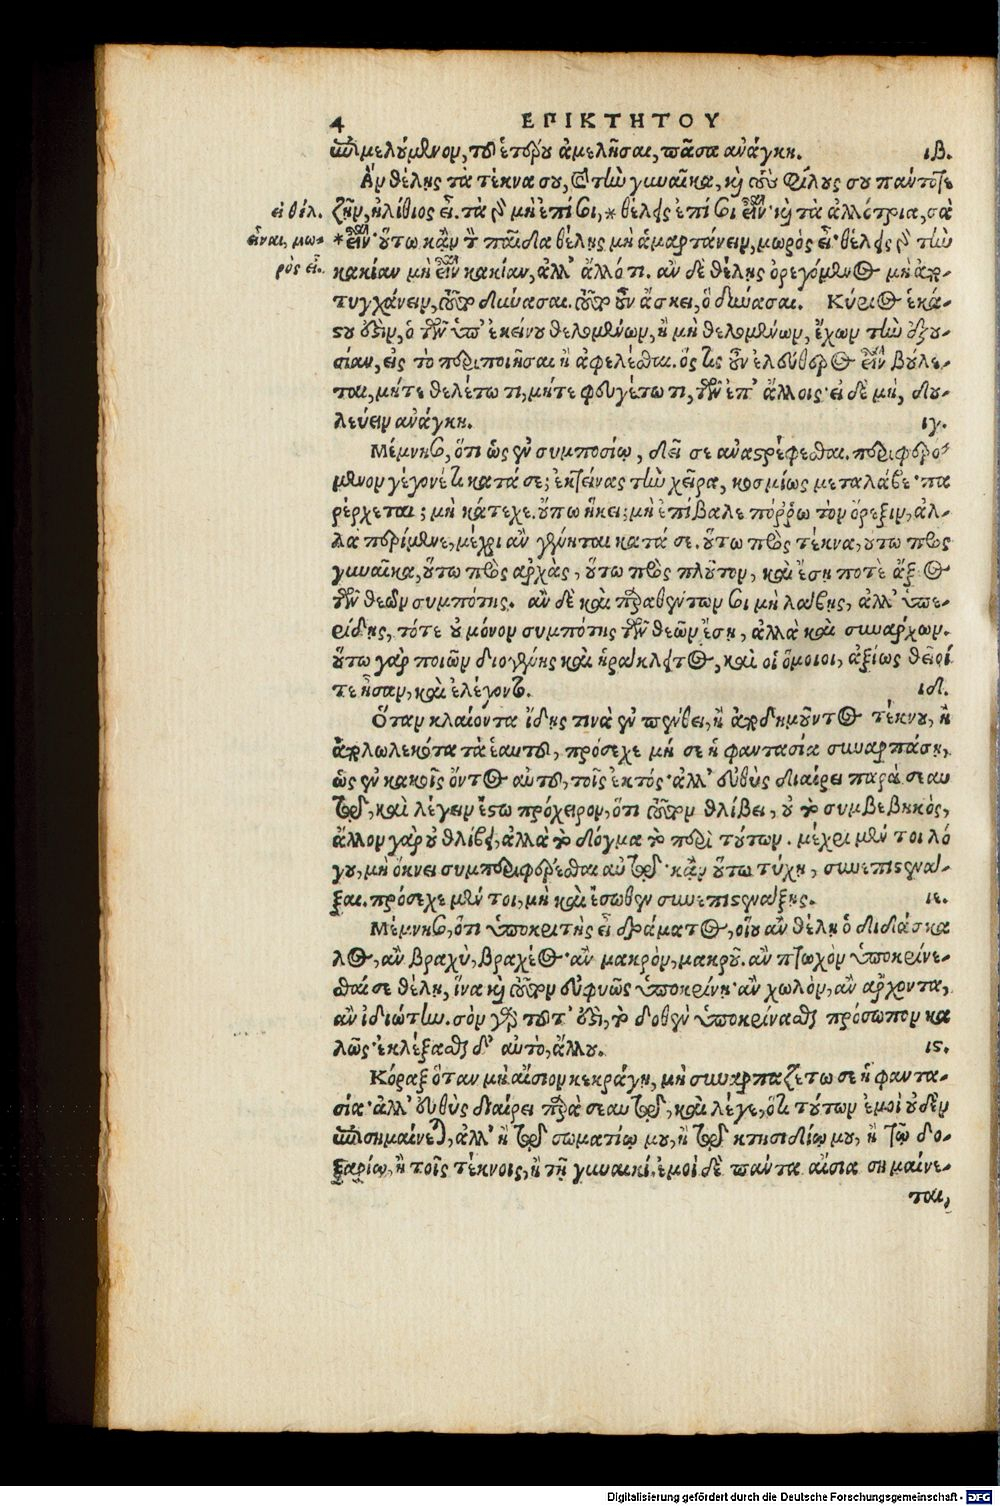 4 ΕΠΙΚΤΗΤΟΥ
ἐπιμελούμενον, τοῦ ἑτέρου ἀμελῆσαι, πᾶσα ἀνάγκη. ιβ.
Ἂν θέλῃς τὰ τέκνα σου, καὶ τὴν γυναῖκα, καὶ τοὺς φίλους σου πάντοτε
ζῆν, ἠλίθιος εἶ. τὰ γὰρ μὴ ἐπί σοι, * θέλεις ἐπί σοι εἶναι· καὶ τὰ ἀλλότρια, σὰ
* εἶναι· οὕτω κἂν τὸν παῖδα θέλῃς μὴ ἁμαρτάνειν, μωρὸς εἶ· θέλεις γὰρ τὴν
κακίαν μὴ εἶναι κακίαν, ἀλλ' ἄλλό τι. ἂν δὲ θέλῃς ὀρεγόμενος μὴ ἀπο-
τυγχάνειν, τοῦτο δύνασαι. τοῦτο οὖν ἄσκει, ὃ δύνασαι. Κύριος ἑκά-
στου ἐστὶν, ὁ τῶν ὑπ' ἐκείνου θελομένων, ἢ μὴ θελομένων, ἔχων τὴν ἐξου-
σίαν, εἰς τὸ περιποιῆσαι ἢ ἀφελέσθαι. ὅς τις οὖν ἐλεύθερος εἶναι βούλε-
ται, μήτε θελέτω τι, μήτε φευγέτω τι, τῶν ἐπ' ἄλλοις· εἰ δὲ μὴ, δου-
λεύειν ἀνάγκη. ιγ.
Μέμνησο, ὅτι ὡς ἐν συμποσίῳ, δεῖ σε ἀναστρέφεσθαι. περιφερό-
μενον γέγονέ τι κατά σε; ἐκτείνας τὴν χεῖρα, κοσμίως μετάλαβε· πα
ρέρχεται; μὴ κάτεχε. οὔπω ἥκει; μὴ ἐπίβαλε πόρρω τὸν ὄρεξιν, ἀλ-
λὰ περίμενε, μέχρι ἂν γένηται κατά σε. οὕτω πρὸς τέκνα, οὕτω πρὸς
γυναῖκα, οὕτω πρὸς ἀρχὰς, οὕτω πρὸς πλοῦτον, καὶ ἔσῃ ποτὲ ἄξιος
τῶν θεῶν συμπότης. ἂν δὲ καὶ παραθέντων σοι μὴ λάβῃς, ἀλλ' ὑπε-
ρίδῃς, τότε οὐ μόνον συμπότης τῶν θεῶν ἔσῃ, ἀλλὰ καὶ συνάρχων.
οὕτω γὰρ ποιῶν διογένης καὶ ἡράκλειτος, καὶ οἱ ὅμοιοι, ἀξίως θεῖοί
τε ἦσαν, καὶ ἐλέγοντο. ιδ.
Ὅταν κλαίοντα ἴδῃς τινὰ ἐν πένθει, ἢ ἀποδημοῦντος τέκνου, ἢ
ἀπολωλεκότα τὰ ἑαυτοῦ, πρόσεχε μή σε ἡ φαντασία συναρπάσῃ,
ὡς ἐν κακοῖς ὄντος αὐτοῦ, τοῖς ἐκτός· ἀλλ' εὐθὺς διαίρει παρὰ σεαυ
τῷ, καὶ λέγειν ἔστω πρόχειρον, ὅτι τοῦτον θλίβει, οὐ τὸ συμβεβηκὸς,
ἄλλον γὰρ οὐ θλίβει, ἀλλὰ τὸ δόγμα τὸ περὶ τούτων. μέχρι μέν τοι λό
γου, μὴ ὄκνει συμπεριφέρεσθαι αὐτῷ· κἂν οὕτω τύχῃ, συνεπιστενά-
ξαι. πρόσεχε μέν τοι, μὴ καὶ ἔσωθεν συνεπιστενάξῃς. ιε.
Μέμνησο, ὅτι ὑποκριτὴς εἶ δράματος, οἵου ἂν θέλῃ ὁ διδάσκα
λος, ἂν βραχὺ, βραχέος· ἂν μακρὸν, μακροῦ. ἂν πτωχὸν ὑποκρίνε-
σθαί σε θέλῃ, ἵνα καὶ τοῦτον εὐφυῶς ὑποκρίνῃ· ἂν χωλὸν, ἂν ἄρχοντα,
ἂν ἰδιώτην. σὸν γὰρ τοῦτ' ἐστὶ, τὸ δοθὲν ὑποκρίνασθαι πρόσωπον κα
λῶς· ἐκλέξασθαι δ' αὐτὸ, ἄλλου. ιϛ.
Κόραξ ὅταν μὴ αἴσιον κεκράγῃ, μὴ συναρπαζέτω σε ἡ φαντα-
σία· ἀλλ' εὐθὺς διαίρει παρὰ σεαυτῷ, καὶ λέγε, ὅτι τούτων ἐμοὶ οὐδὲν
ἐπισημαίνεται, ἀλλ' ἢ τῷ σωματίῳ μου, ἢ τῷ κτησιδίῳ μου, ἢ τῷ δο-
ξαρίῳ, ἢ τοῖς τέκνοις, ἢ τῇ γυναικί. ἐμοὶ δὲ πάντα αἴσια σημαίνε-
ται,
εἰ θέλ.
εἶναι, μω-
ρὸς εἶ.
Digitalisierung gefördert durch die Deutsche Forschungsgemeinschaft - DFG